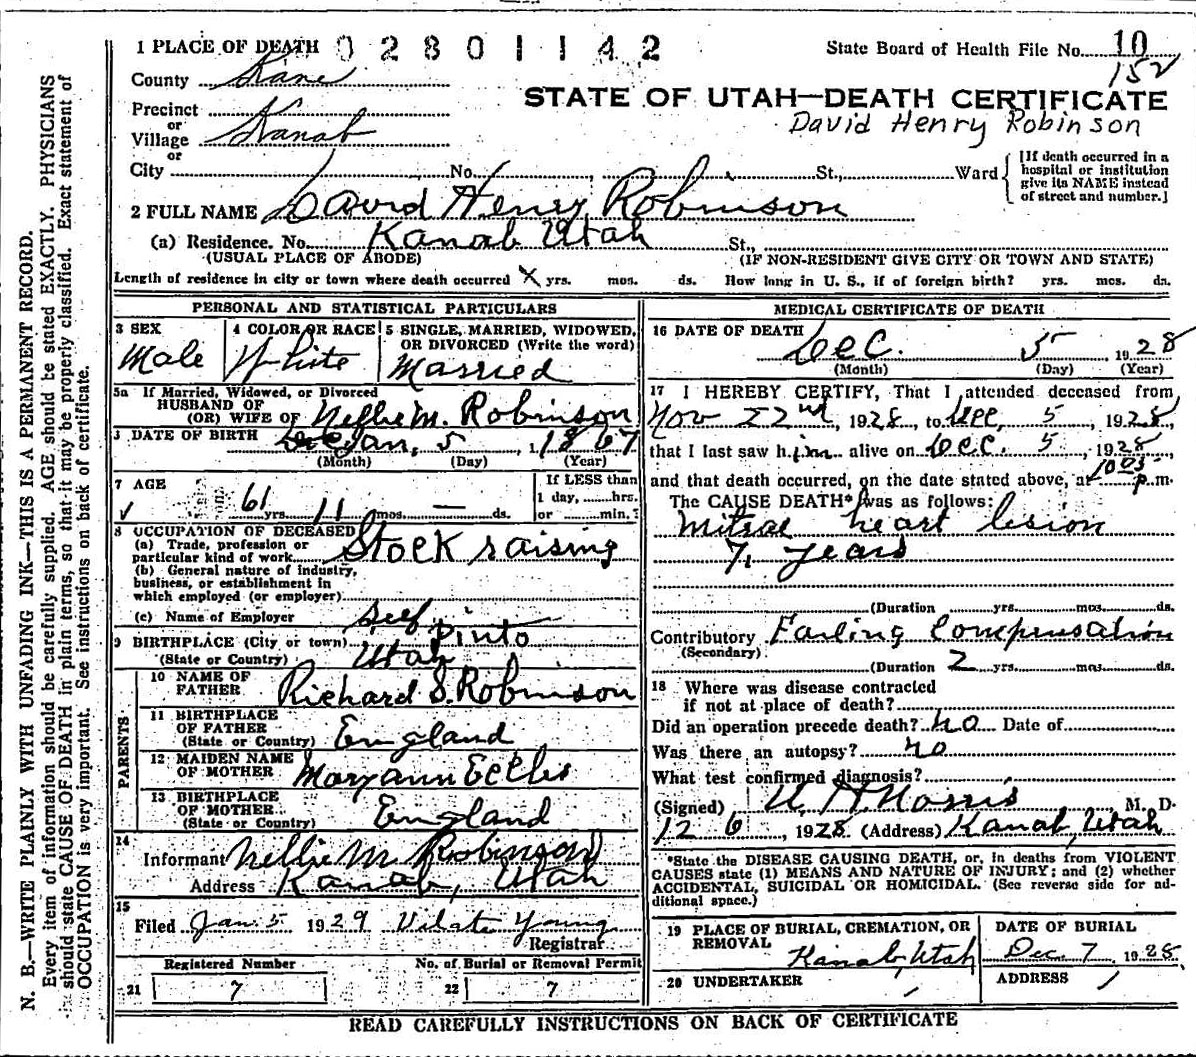 1 PLACE OF DEATH 02801142 State Board of Health File No. 10
152
County Kane
STATE OF UTAH—DEATH CERTIFICATE
David Henry Robinson
Precinct
or
Village Kanab
or
City No. St., Ward
[If death occurred in a
hospital or institution
give its NAME instead
of street and number.]
2 FULL NAME David Henry Robinson
(a) Residence. No. Kanab Utah St.,
(USUAL PLACE OF ABODE) (IF NON-RESIDENT GIVE CITY OR TOWN AND STATE)
Length of residence in city or town where death occurred X yrs. mos. ds. How long in U. S., if of foreign birth? yrs. mos. ds.
PERSONAL AND STATISTICAL PARTICULARS
3 SEX
Male
4 COLOR OR RACE
White
5 SINGLE, MARRIED, WIDOWED,
OR DIVORCED (Write the word)
Married
5a If Married, Widowed, or Divorced
HUSBAND OF
(OR) WIFE OF Nellie M. Robinson
DATE OF BIRTH Jan, 5 1867
(Month) (Day) (Year)
7 AGE
61 yrs. 11 mos. — ds.
If LESS than
1 day, hrs.
or min.?
8 OCCUPATION OF DECEASED
(a) Trade, profession or
particular kind of work Stock raising
(b) General nature of industry,
business, or establishment in
which employed (or employer)
(c) Name of Employer Self
9 BIRTHPLACE (City or town) Pinto
(State or Country) Utah
PARENTS
10 NAME OF
FATHER Richard S. Robinson
11 BIRTHPLACE
OF FATHER
(State or Country) England
12 MAIDEN NAME
OF MOTHER Mary ann Eccles
13 BIRTHPLACE
OF MOTHER
(State or Country) England
14
Informant Nellie M Robinson
Address Kanab, Utah
15
Filed Jan. 5 1929 Vilate Young
Registrar
Registered Number No. of Burial or Removal Permit
21 7 22 7
MEDICAL CERTIFICATE OF DEATH
16 DATE OF DEATH
Dec. 5 1928
(Month) (Day) (Year)
17 I HEREBY CERTIFY, That I attended deceased from
Nov 22nd, 1928, to Dec, 5, 1928,
that I last saw him alive on Dec. 5, 1928
and that death occurred, on the date stated above, at 1005 p.m.
The CAUSE DEATH* was as follows:
Mitral heart lesion
7, years
(Duration yrs. mos. ds.
Contributory Failing Compensation
(Secondary)
(Duration 2 yrs. mos. ds.
18 Where was disease contracted
if not at place of death?
Did an operation precede death? no Date of
Was there an autopsy? no
What test confirmed diagnosis?
(Signed) H. Norris, M. D.
12 6, 1928 (Address) Kanab, Utah
*State the DISEASE CAUSING DEATH, or, in deaths from VIOLENT
CAUSES state (1) MEANS AND NATURE OF INJURY; and (2) whether
ACCIDENTAL, SUICIDAL OR HOMICIDAL. (See reverse side for ad-
ditional space.)
19 PLACE OF BURIAL, CREMATION, OR
REMOVAL
Kanab, Utah
DATE OF BURIAL
Dec. 7 1928
20 UNDERTAKER
ADDRESS
READ CAREFULLY INSTRUCTIONS ON BACK OF CERTIFICATE
N. B.—WRITE PLAINLY WITH UNFADING INK—THIS IS A PERMANENT RECORD.
Every item of information should be carefully supplied. AGE should be stated EXACTLY. PHYSICIANS
should state CAUSE OF DEATH in plain terms, so that it may be properly classified. Exact statement of
OCCUPATION is very important. See instructions on back of certificate.